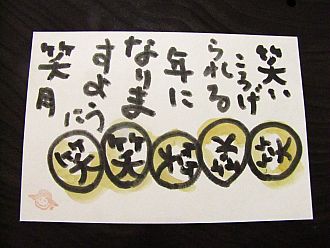 笑い
ころげ
られる
年に
なりま
すように
笑月
笑笑笑笑笑